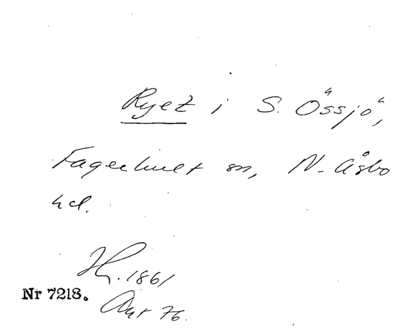 Ryet i S. Össjö,
Fagerhult sn, N. Åsbo
hd.
H. 1861
Nr 7218.
Akt 76.